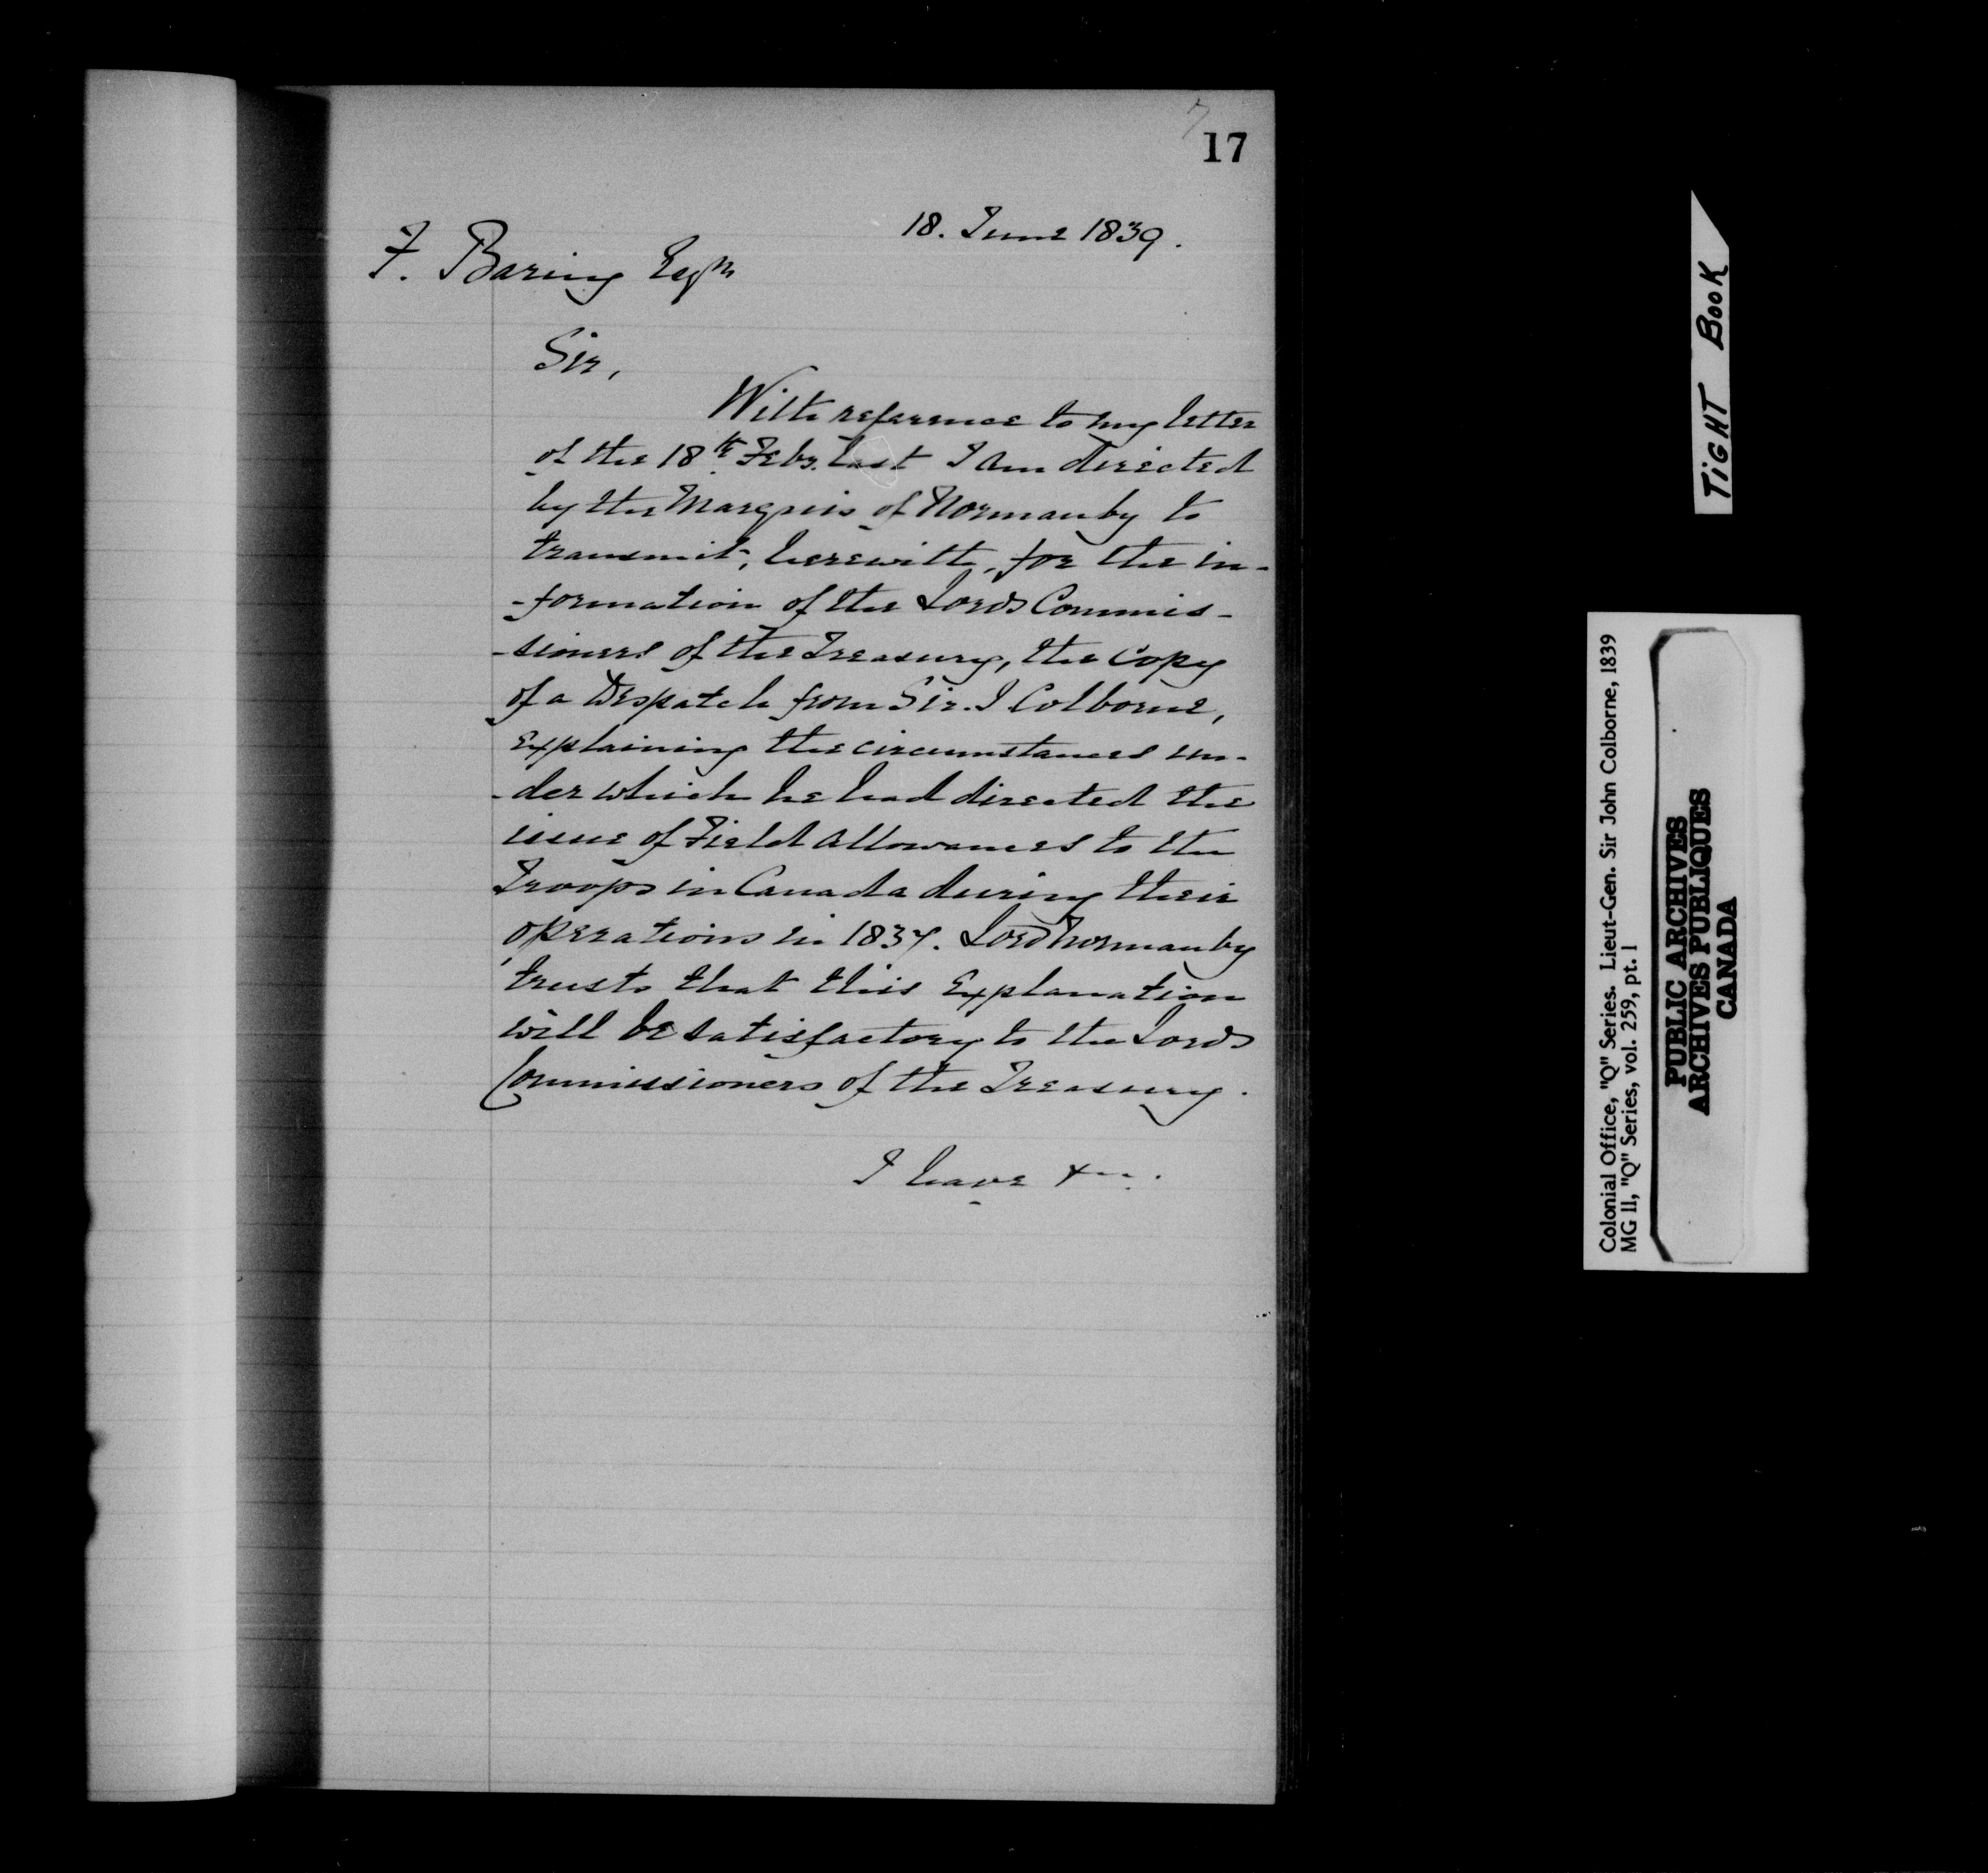 7
17
18. June 1839.
F. Baring Esqre
Sir,
With reference to my letter
of the 18th Feby. last I am directed
by the Marquis of Normanby to
transmit, herewith, for the in-
-formation of the Lords Commis-
-sioners of the Treasury, the Copy
of a Despatch from Sir. J Colborne,
explaining the circumstances un-
-der which he had directed the
issue of Field allowances to the
Troops in Canada during their
operations in 1837. Lord Normanby
trusts that this Explanation
will be satisfactory to the Lords
Commissioners of the Treasury.
I have &c.
TIGHT BOOK
Colonial Office, "Q" Series. Lieut-Gen. Sir John Colborne, 1839
MG 11, "Q" Series, vol. 259, pt. 1
PUBLIC ARCHIVES
ARCHIVES PUBLIQUES
CANADA